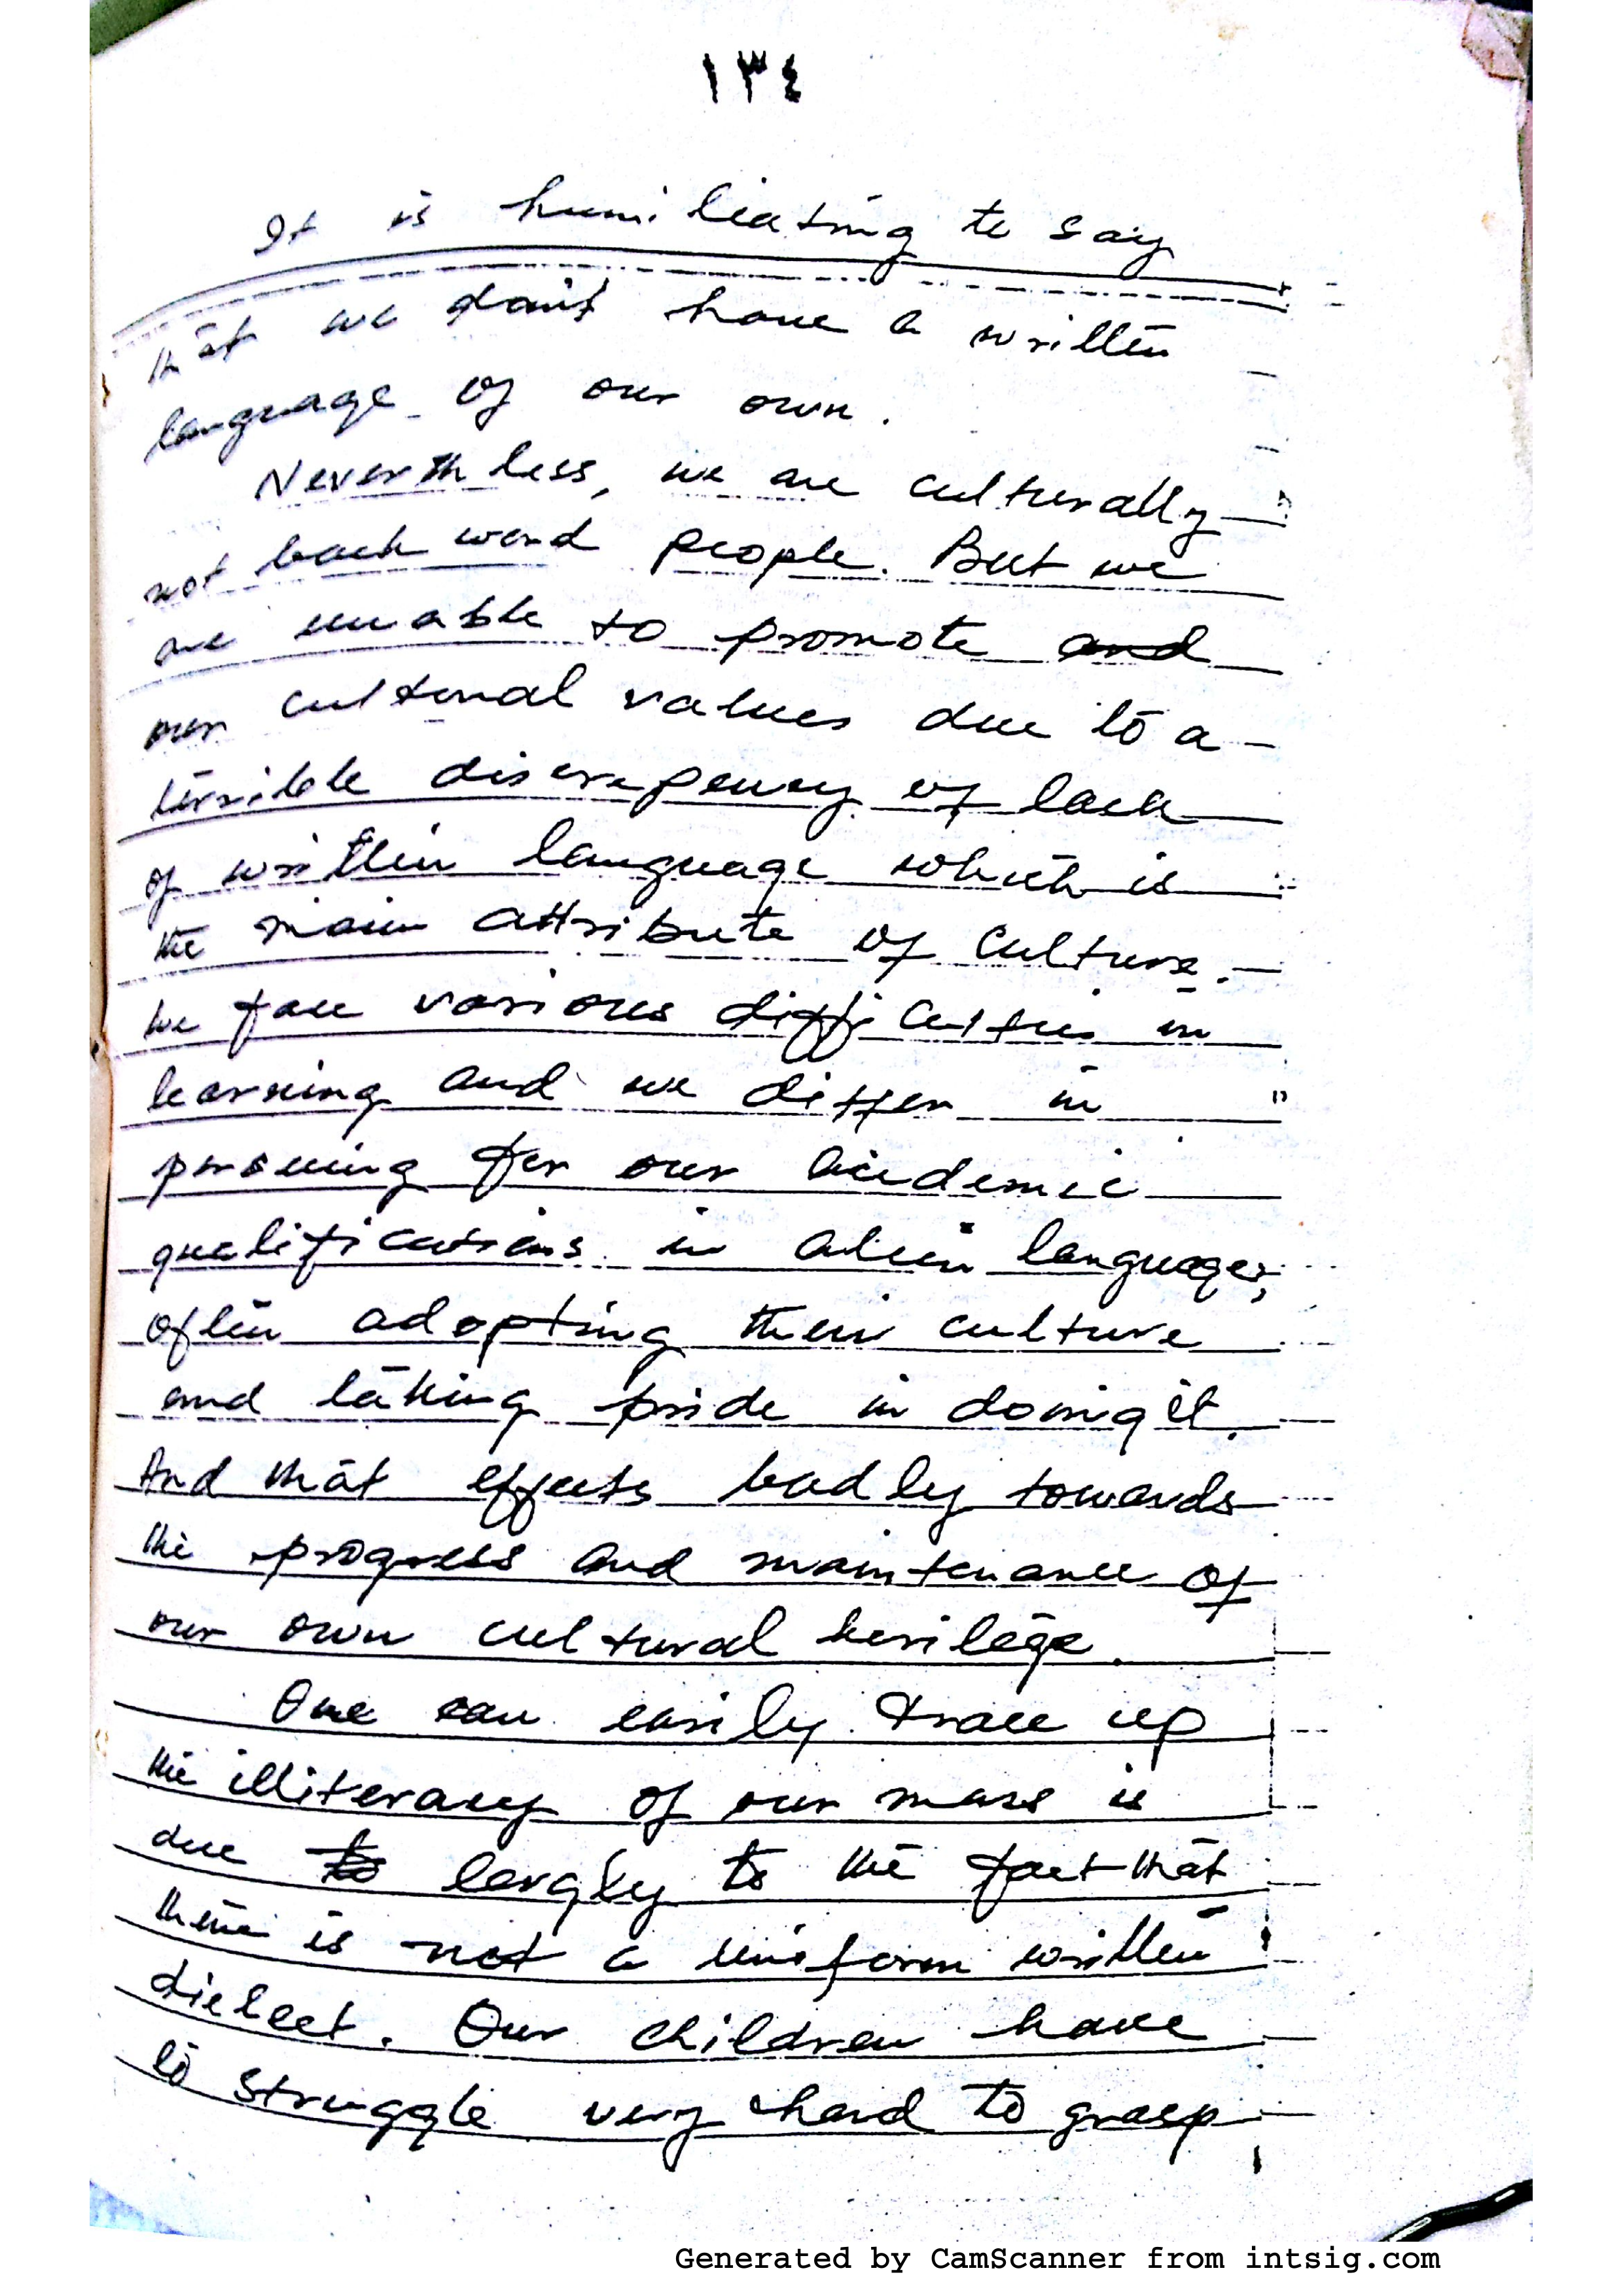 ١٣٤
It is humiliating to say
that we don't have a written
language of our own.
Neverthless, we are culturally
not back ward people. But we
are unable to promote and
our cultural values due to a
terrible discrepency of lack
of written language which is
the main attribute of culture.
we face various difficulties in
learning and we differ in
persuing for our acedemic
qualifications in alien languages,
often adopting their culture
and taking pride in doing it.
And that effects badly towards
the progress and maintenance of
our own cultural heritage.
One can easily trace up
the illiteracy of our mass is
due to largly to the fact that
there is not a uniform written
dielect. Our children have
to struggle very hard to grasp
Generated by CamScanner from intsig.com